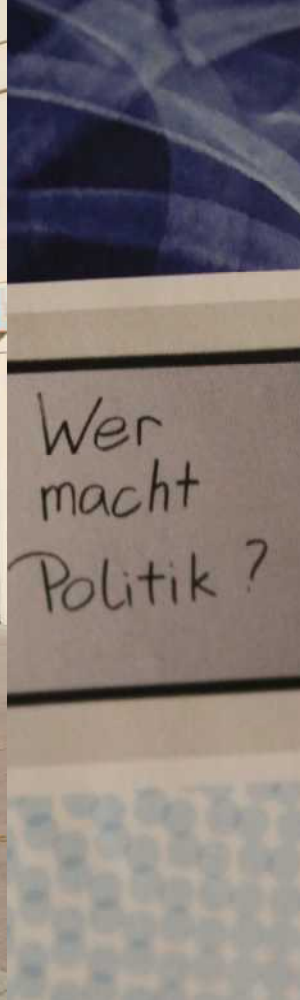 Wer
macht
Politik ?